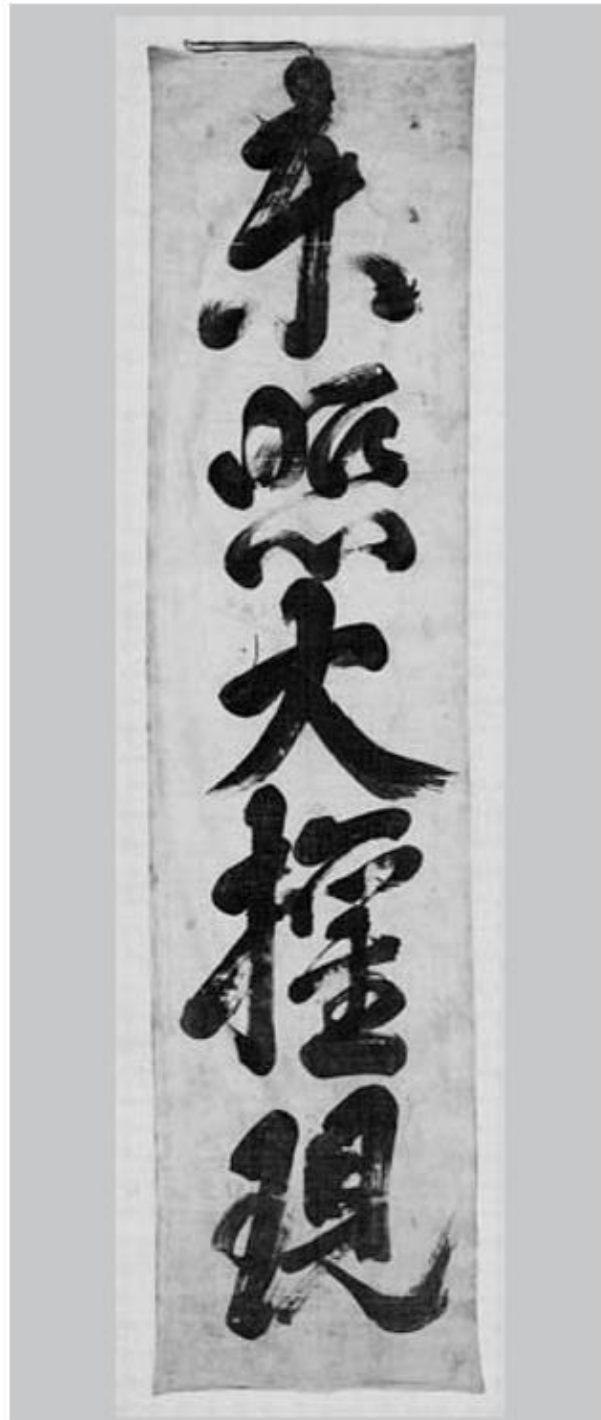 東照大権現